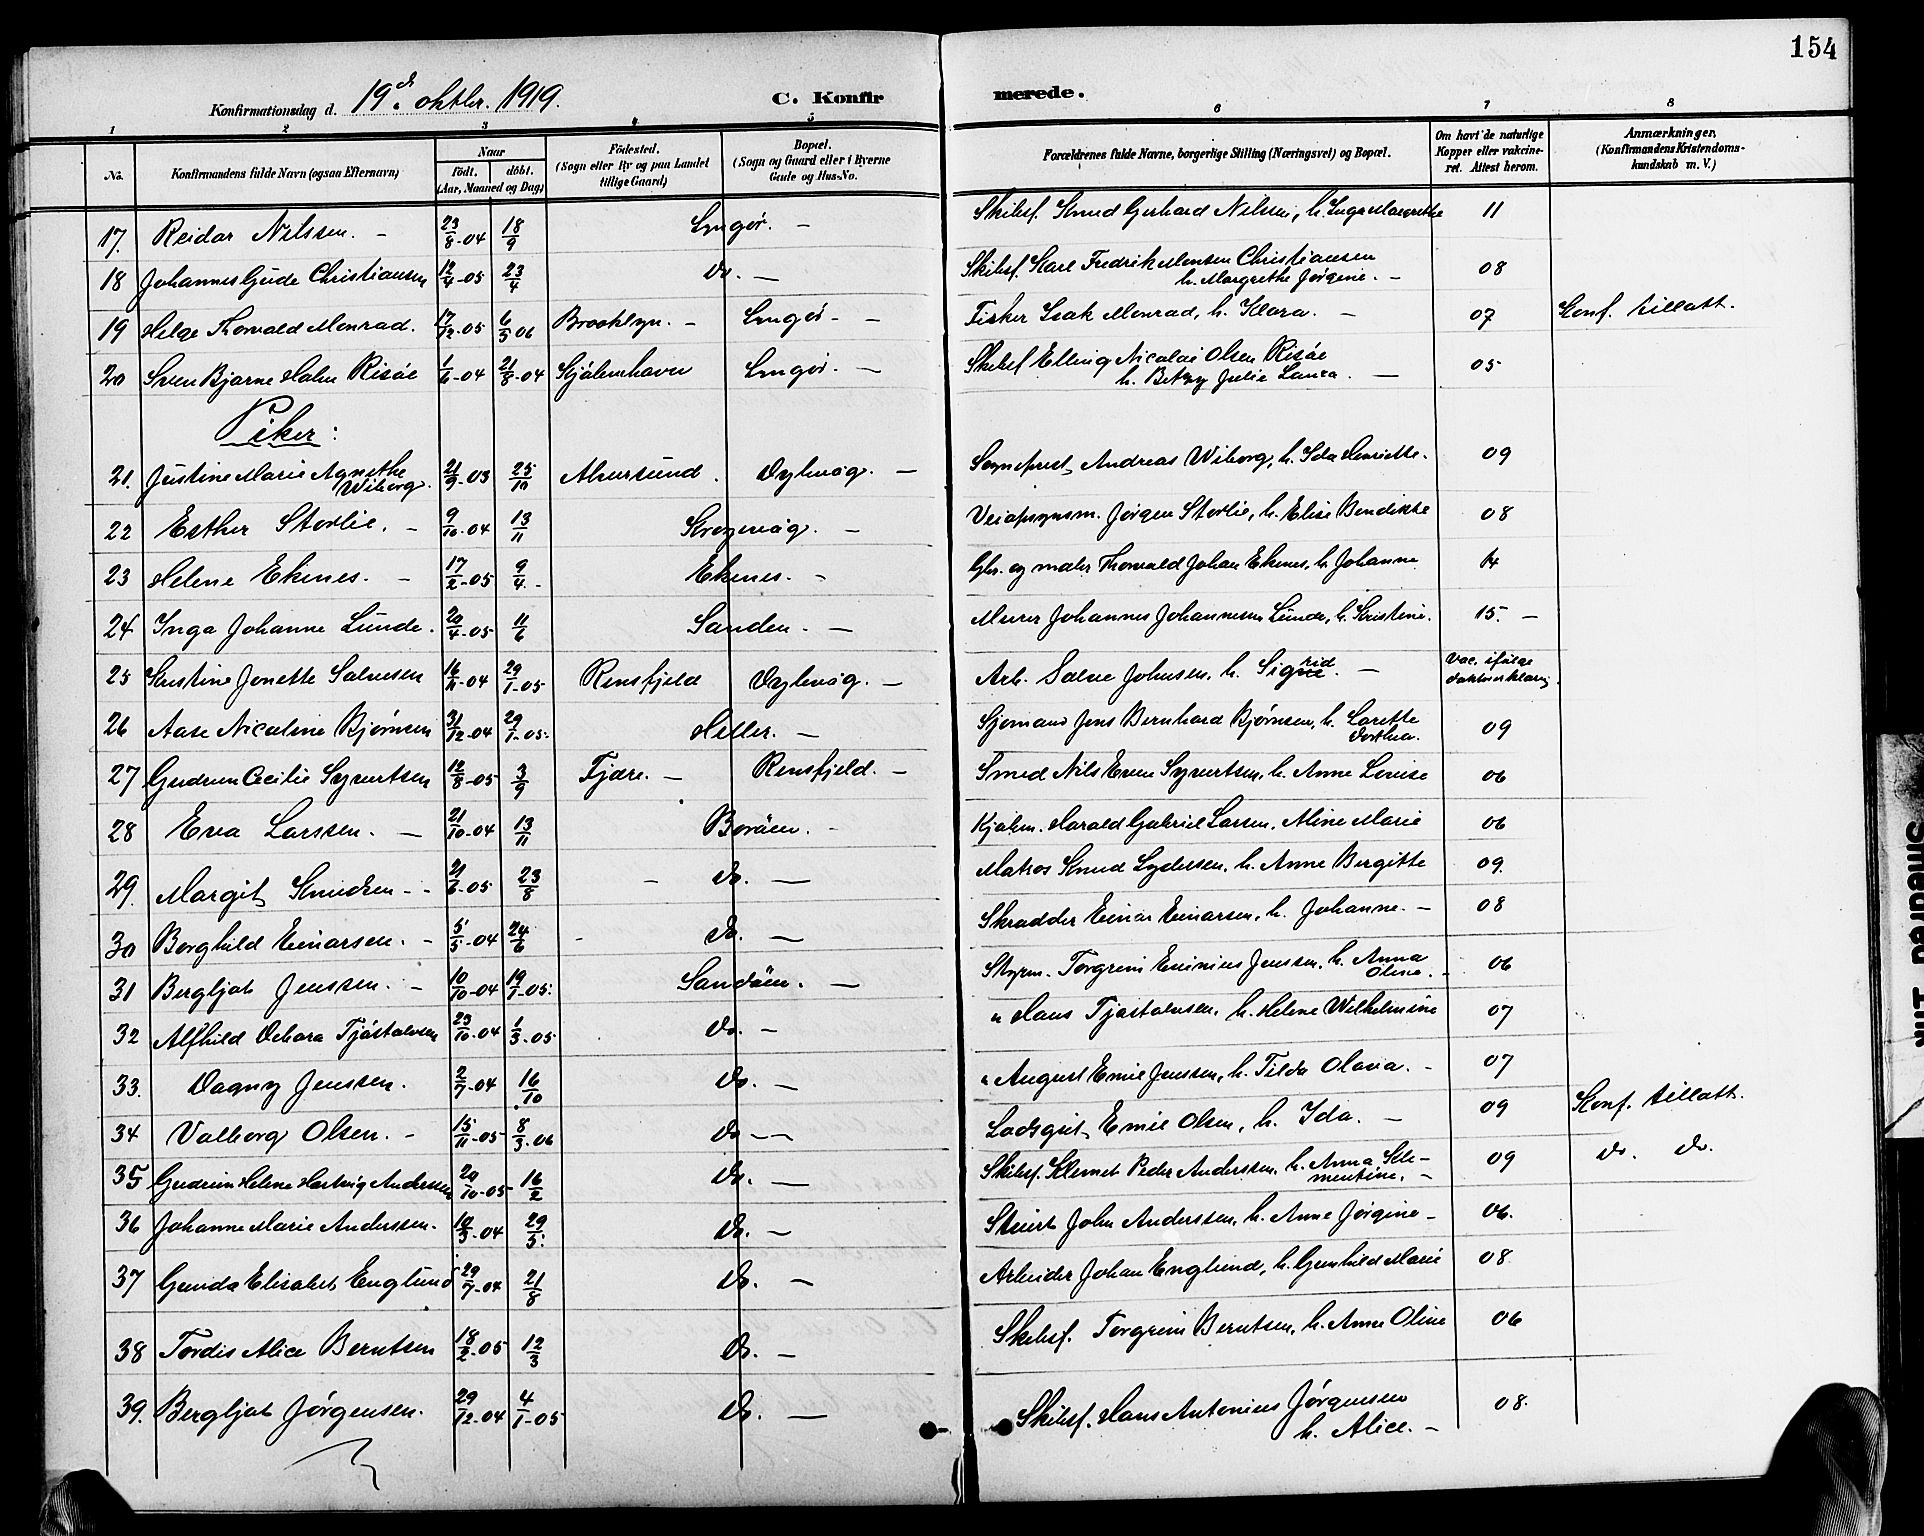 154
Konfirmationsdag d. 19d. oktbr. 1919. C. Konfirmerede.
1 2 3 4 5 6 7 8
No. Konfirmandens fulde Navn (ogsaa Efternavn) Naar Födt. döbt. (Aar, Maaned og Dag) Födested. (Sogn eller By og paa Landet tillige Gaard) Bopæl. (Sogn og Gaard eller i Byerne Gade og Hus-No. Forældrenes fulde Navne, borgerlige Stilling (Næringsvei) og Bopæl. Om havt de naturlige Kopper eller vakcineret. Attest herom. Anmærkninger, (Konfirmandens Kristendomskundskab m. V.)
17. Reidar Nilssen. - 23/8-04 18/9 Lyngör. - Skibsf. Knud Gerhard Nilssen, h. Inga Margrethe 11
18 Johannes Gude Christiansen 12/4-05 23/4 do. - Skibsf. Karl Fredrik Monsen Christiansen h. Margrethe Jørgine. - 08
19 Helge Thorvald Monrad. 17/12-05 6/5 06 Brooklyn. - Lyngör - - Fisker Isak Monrad, h. Klara. - 07 Konf. tillatt.
20 Sven Bjarne Holm Risöe 1/6-04 21/8-04 Kjöbenhavn Lyngör. - Skibsf Elling Nicolai Olsen Risöe h. Betzy Julie Laura. - 05
Piker:
21. Justine Marie Agnethe Wiborg. 21/9-03 25/10 Alversund. Dybvåg. - Sogneprest Andreas Wiborg, h. Ida Henriette. 09
22 Esther Storlie. - 9/10-04 13/11 Krogsvåg. - Veiopsynsm. Jørgen Storlie, h. Elise Bendikte 08
23 Helene Ekenes. - 17/2-05 9/4 - Ekenes. - Gbr. og maler Thorvald Johan Ekenes, h. Johanne 14
24 Inga Johanne Lunde. 20/4-05 11/6 Sanden. - Murer Johannes Johannesen Lunde, h. Kristine. 15. -
25 Kristine Jonette Salvesen 16/11-04 29/1-05 Rensfjeld Dybvåg. - Arb. Salve Johnsen, h. Sigrid. - Vac. ifølge doktorerklæring.
26 Aase Nicoline Bjørnsen 31/12-04 29/1-05. Heller. - Sjømand Jens Bernhard Bjørnsen, h. Lorette Dorthea. 09
27 Gudrun Cecilie Syvertsen 12/8-05 3/9 Fjære. - Rensfjeld. - Smed Nils Even Syvertsen, h. Anne Lovise 06
28 Eva Larssen. - 21/10-04 13/11 Boröen. - Kjøbm. Harald Gabriel Larsen, Aline Marie 06
29. Margit Knudsen - - 21/6-05 23/8 - do. - Matros Knud Lydersen, h. Anne Bergitte 09.
30 Borghild Einarsen. - 5/5-04 24/6 - do. - Skrædder Einar Einarsen, h. Johanne. - 08
31 Bergljot Jenssen. - 10/10-04 19/1-05. Sandöen. - Styrm. Torgrim Enimius Jenssen, h. Anna Oline. - 06
32 Alfhild Debora Tjöstolvsen 23/10-04 1/3-05 do. - " Hans Tjøstolvsen, h. Helene Wilhelmine 07
33. Dagny Jenssen. 2/7-04 16/10 do. - " August Emil Jenssen, h. Tilda Olava. - 07
34 Valborg Olsen. - 15/11-05 8/3-06 do - - Lodsgut Emil Olsen, h. Ida. - 09 Konf. tillatt.
35 Gudrun Helene Hartvig Anderssen 20/10-05 16/2 do. - Skibsf. Klemet Peder Anderssen, h. Anna Klementine. - 09 do. do.
36 Johanne Marie Anderssen. 19/3-04 29/5. do. - Stuert John Anderssen, h. Anne Jørgine - 06.
37 Gunda Elisabet Englund 29/7-04 21/8 do. - Arbeider Johan Englund, h. Gunhild Marie 08
38 Tordis Alice Berntsen 18/2-05 12/3 do. - Skibsf. Torgrim Berntsen, h. Anne Oline 06
39. Bergljot Jørgensen. 29/12-04 4/1-05 do. - Skibsf. Hans Antonius Jørgensen h. Alice. - 08.